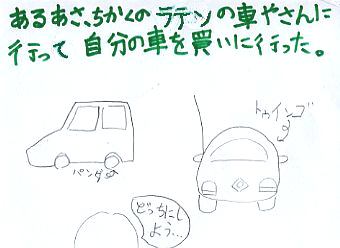 あるあさ、ちかくの ラテンの車やさんに
行って 自分の車を買いに行った。
トゥインゴ
パンダ
どっちにし
よう…